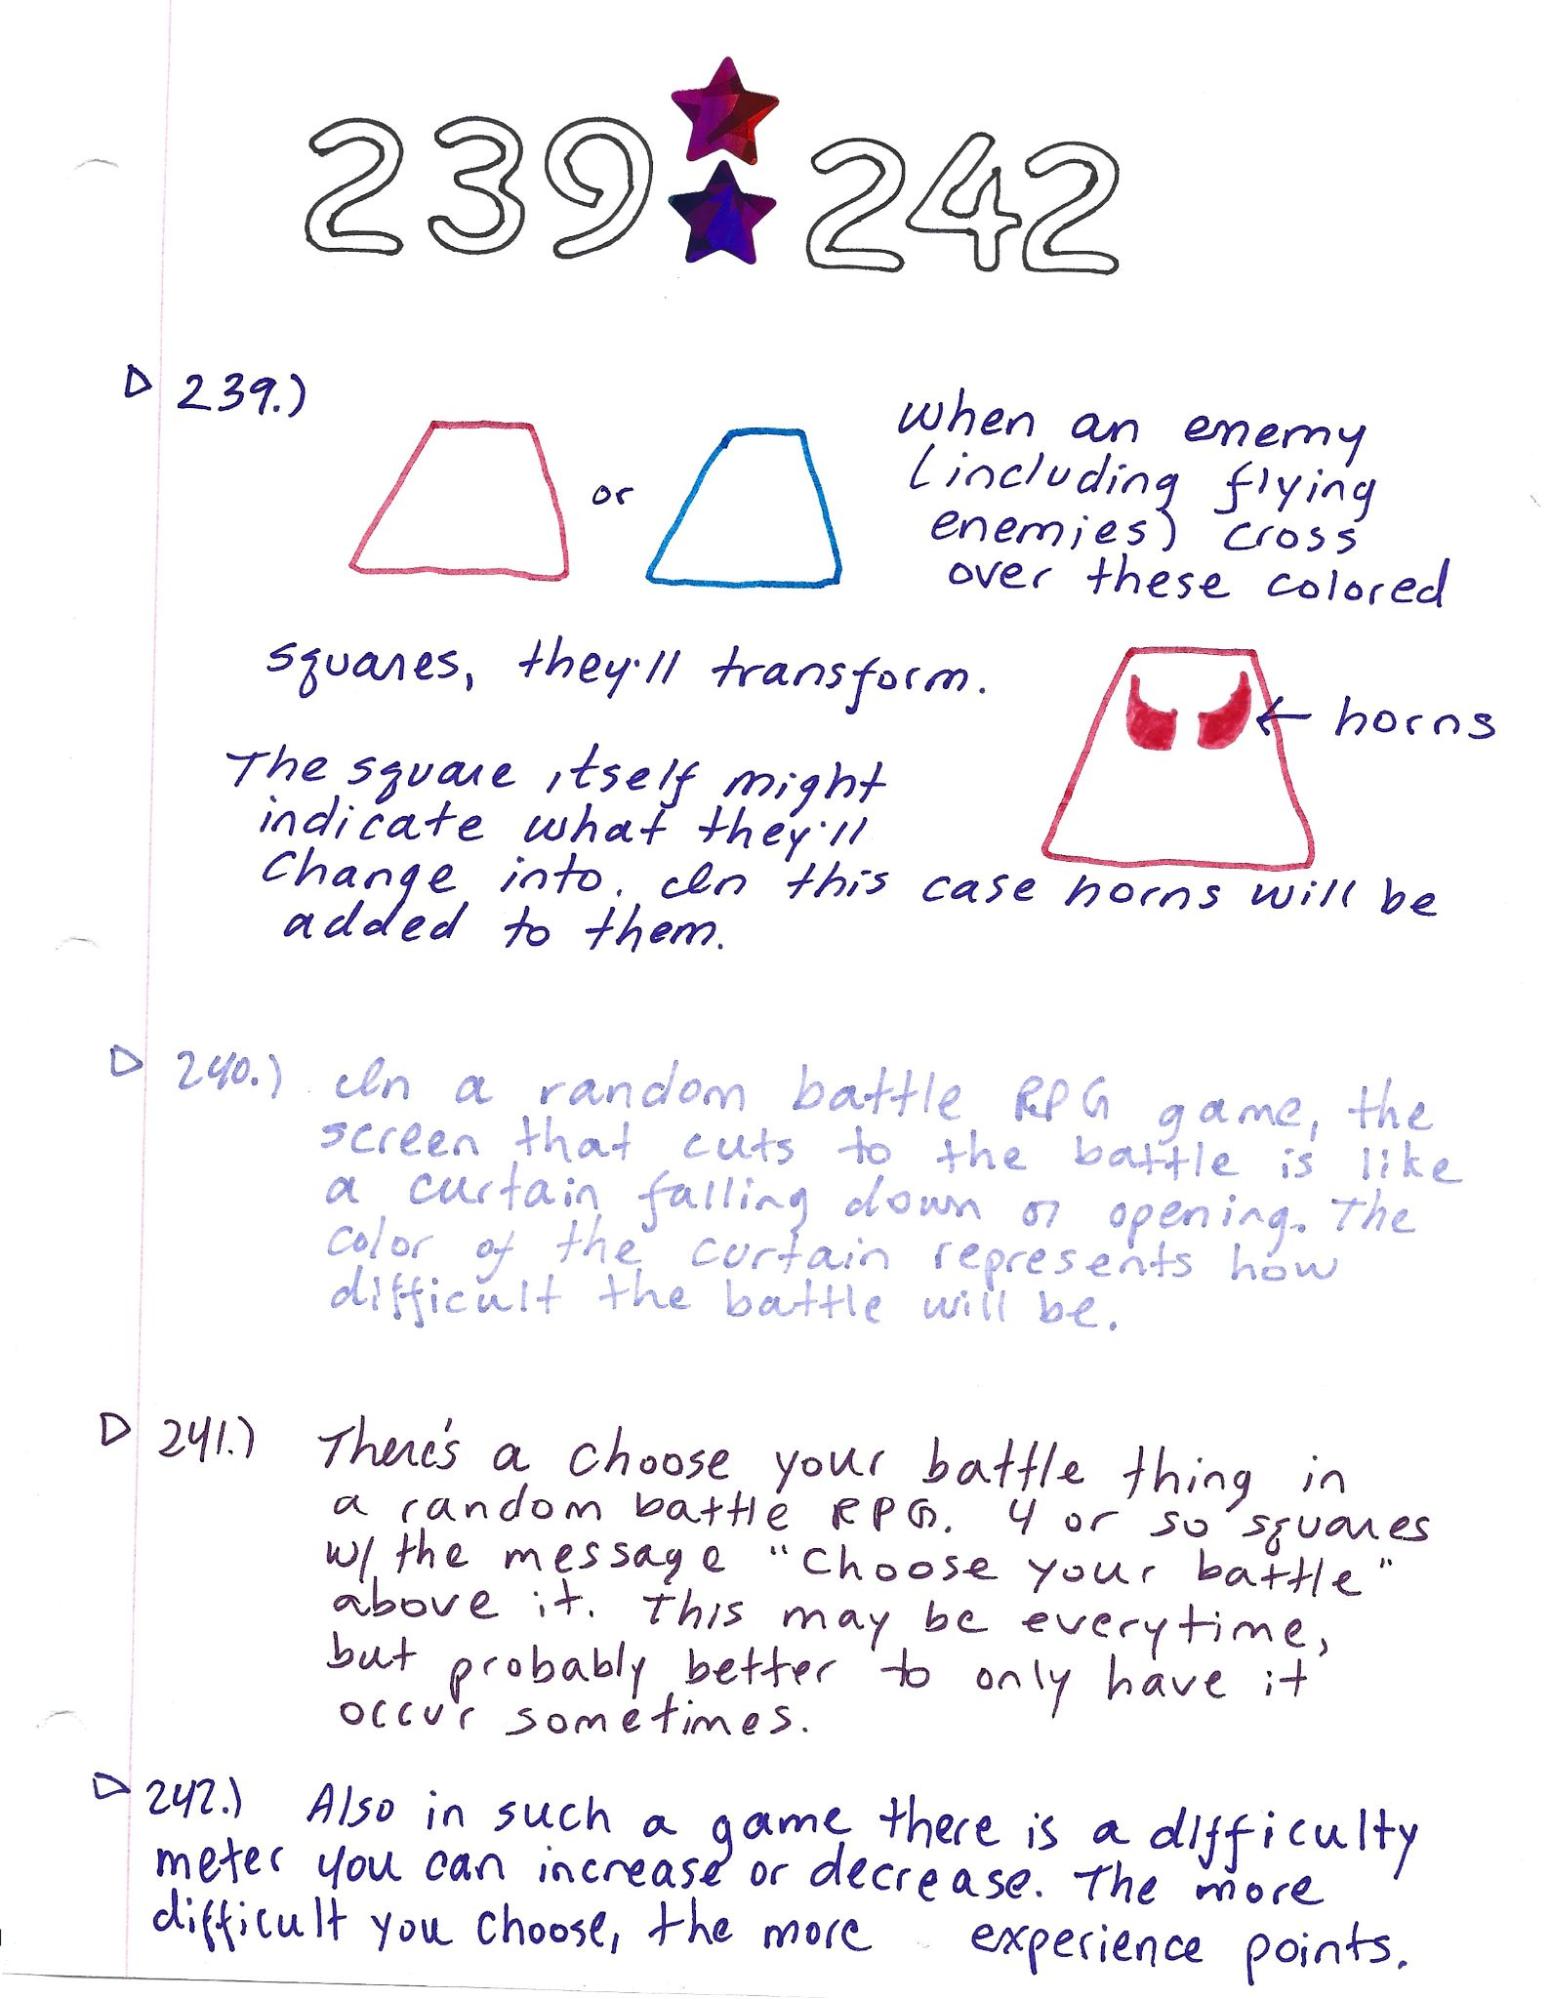 239 242
239.)
or
when an enemy
(including flying
enemies) cross
over these colored
squares, they'll transform.
← horns
The square itself might
indicate what they'll
change into. In this case horns will be
added to them.
240.) In a random battle RPG game, the
screen that cuts to the battle is like
a curtain falling down or opening. The
color of the curtain represents how
difficult the battle will be.
241.) There's a choose your battle thing in
a random battle RPG. 4 or so squares
w/ the message "Choose your battle"
above it. This may be everytime,
but probably better to only have it
occur sometimes.
242.) Also in such a game there is a difficulty
meter you can increase or decrease. The more
difficult you choose, the more experience points.